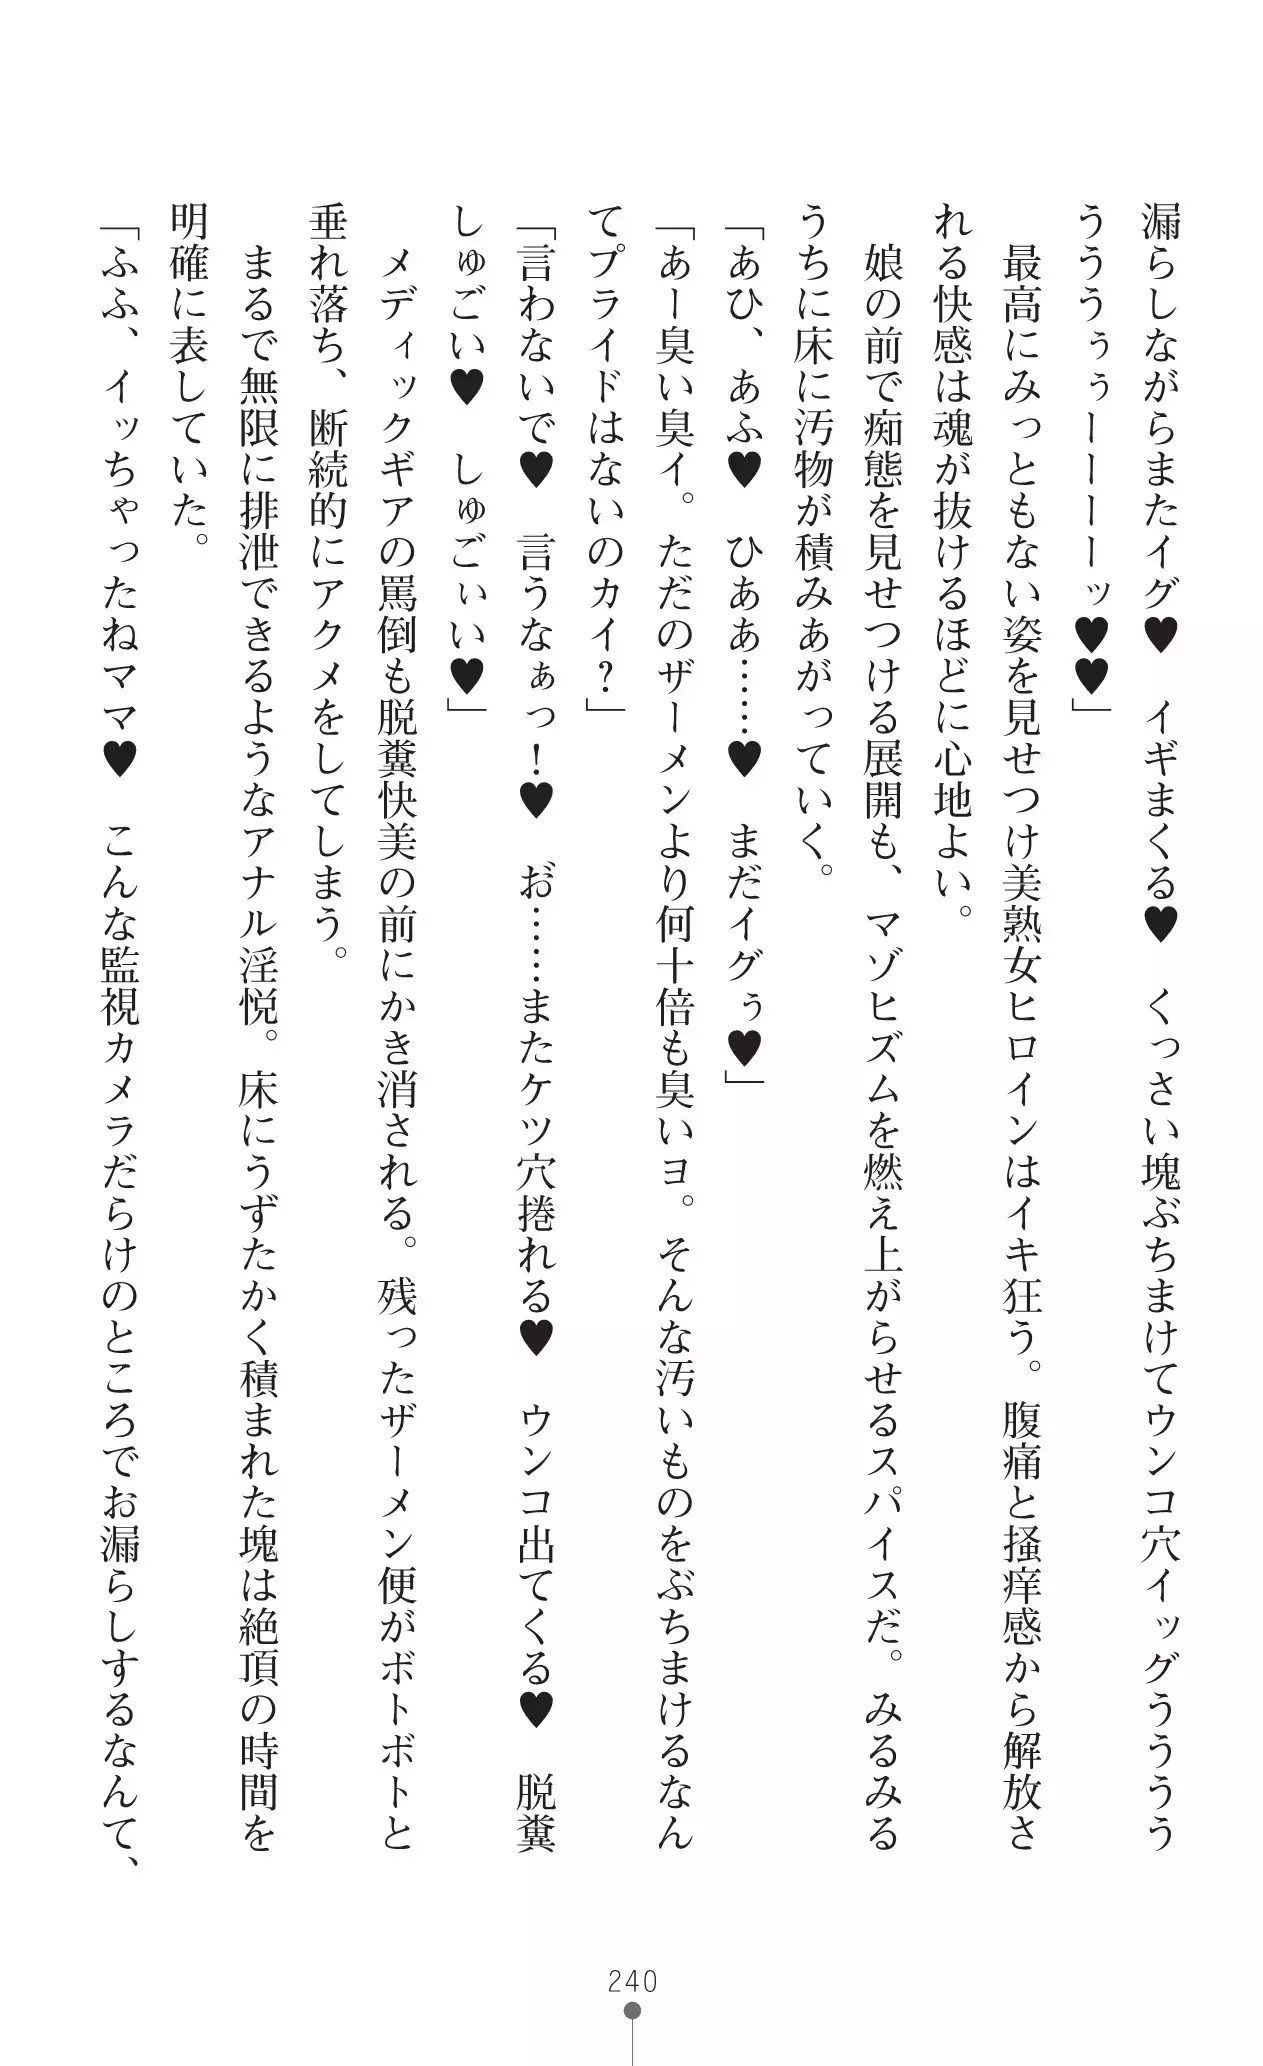 漏らしながらまたイグ♥　イギまくる♥　くっさい塊ぶちまけてウンコ穴イッグうううう
うううぅぅーーーーッ♥♥」
　最高にみっともない姿を見せつけ美熟女ヒロインはイキ狂う。腹痛と掻痒感から解放さ
れる快感は魂が抜けるほどに心地よい。
　娘の前で痴態を見せつける展開も、マゾヒズムを燃え上がらせるスパイスだ。みるみる
うちに床に汚物が積みあがっていく。
「あひ、あふ♥　ひああ……♥　まだイグぅ♥」
「あー臭い臭イ。ただのザーメンより何十倍も臭いヨ。そんな汚いものをぶちまけるなん
てプライドはないのカイ?」
「言わないで♥　言うなぁっ!♥　お゛……またケツ穴捲れる♥　ウンコ出てくる♥　脱糞
しゅごい♥　しゅごぃい♥」
　メディックギアの罵倒も脱糞快美の前にかき消される。残ったザーメン便がボトボトと
垂れ落ち、断続的にアクメをしてしまう。
　まるで無限に排泄できるようなアナル淫悦。床にうずたかく積まれた塊は絶頂の時間を
明確に表していた。
「ふふ、イッちゃったねママ♥　こんな監視カメラだらけのところでお漏らしするなんて、
240